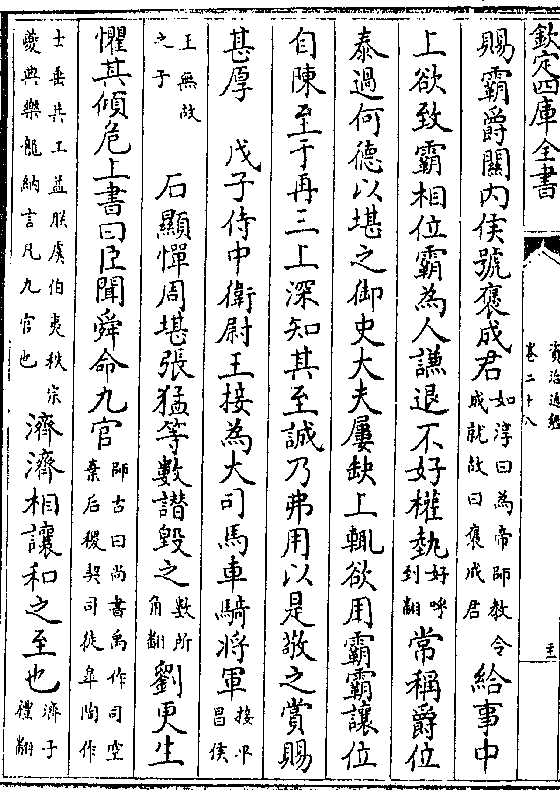 欽定四庫全書
資治通鑑
卷二十八
賜霸爵關内侯號褒成君如淳曰為帝師教令成就故曰褒成君給事中
上欲致霸相位霸為人謙退不好權埶好呼到翻常稱爵位
泰過何德以堪之御史大夫屢缺上輒欲用霸霸讓位
自陳至于再三上深知其至誠乃弗用以是敬之賞賜
甚厚 戊子侍中衛尉王接為大司馬車騎將軍接平昌侯
王無故之子 石顯憚周堪張猛等數譖毀之數所角翻劉更生
懼其傾危上書曰臣聞舜命九官師古曰尚書禹作司空棄后稷契司徒皐陶作
士垂共工益朕虞伯夷秩宗夔典樂龍納言凡九官也濟濟相讓和之至也濟子禮翻